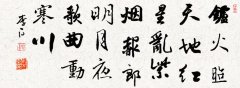 鑪火照
天地紅
星亂紫
烟赧郎
明月夜
歌曲動
寒川